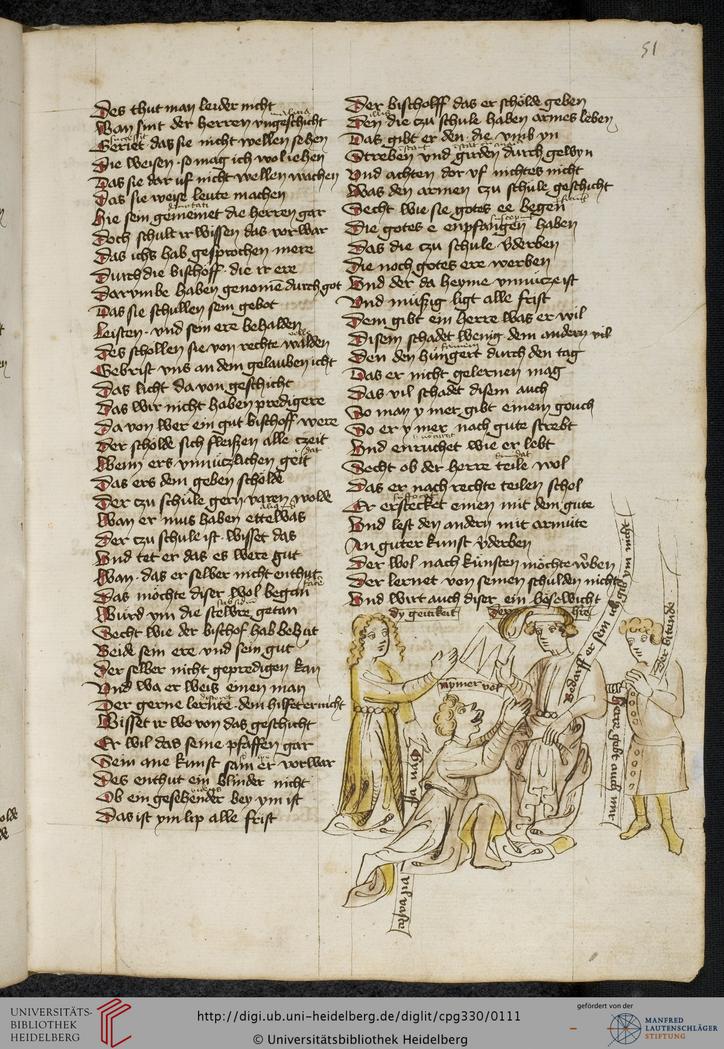 51
Des thut man leider nicht
Wan sint der herren vngeschicht
Geriet das sie nicht wellen sehen
Die weisen so mag ich wol iehen
Das sie dar uf nicht wellen wachen
Das sie weise leute machen
Hie sein gemeinet die herren gar
Doch schult ir wissen das vorwar
Das ichs hab gesprochen mere
Durch die bischoff die ir ere
Dar vmbe haben genomen durch got
Das sie schullen sein gebot
Leisten vnd sein ere behalden
Des schollen sie von rechte walden
Gebrist vns an dem gelauben icht
Das licht da von geschicht
Das wir nicht haben predigere
Da von wer ein gut bischoff were
Der scholde sich fleißen alle czeit
Wenn ers vnnuczlichen geit
Das ers dem geben scholde
Der czu schule gern varen wolde
Wan er mus haben ettelwas
Der czu schule ist wisset das
Vnd tet er das es were gut
Wan das er selber nicht enthut
Das mochte diser wol began
Wurd ym die stewre getan
Secht wie der bischof hab behut
Beide sein ere vnd sein gut
Der selber nicht gepredigen kan
Vnd wa er weis einen man
Der gerne lernte dem hilfet er nicht
Wisset ir wo von das geschicht
Er wil das seine pfaffen gar
Sein ane kunst sam er vorwar
Des enthut ein blinder nicht
Ob ein gesehender bey ym ist
Das ist ym lip alle frist
Der bischolff das er scholde geben
Den die czu schule haben armes leben
Das gibt er den die vmb yn
Streben vnd girden durch gewyn
Vnd achten dor vf nichtes nicht
Was den armen czu schule geschicht
Secht wie sie gotes ee begen
Die gotes e enpfangen haben
Das die czu schule vderben
Die noch gotes ere werben
Vnd der da heyme vnnucze ist
Vnd mußig ligt alle frist
Dem gibt ein herre was er wil
Disem schadet wenig dem andern vil
Den den hungert durch den tag
Das er nicht gelernen mag
Das vil schadet disem auch
Wo man y mer gibt einem gouch
So er y mer nach gute strebt
Vnd enruchet wie er lebt
Secht ob der herre teile wol
Das er nach rechte teilen schol
Er erstecket einen mit dem gute
Vnd lest den andern mit armute
An guter kunst vderben
Der wol nach kunsten mochte werben
Der lernet von seinen schulden nicht
Vnd wirt auch diser ein bösewicht
dy geitikeit
nymer vol
Bedarff er sein ich gib im nicht
der bitende
herre gebt auch mir
UNIVERSITÄTS-
BIBLIOTHEK
HEIDELBERG
http://digi.ub.uni-heidelberg.de/diglit/cpg330/0111
© Universitätsbibliothek Heidelberg
gefördert von der
MANFRED
LAUTENSCHLÄGER
STIFTUNG